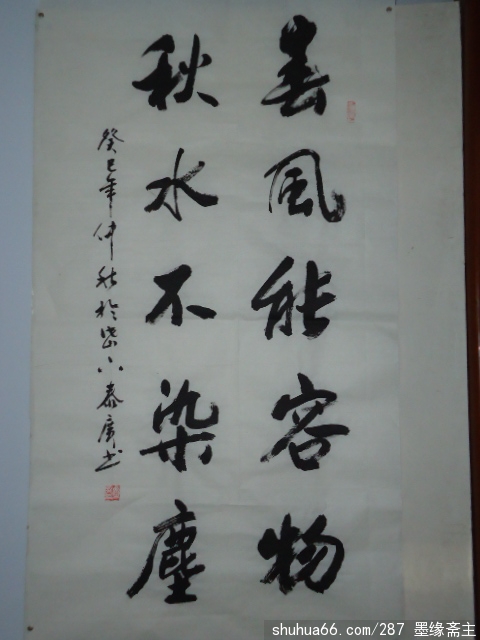 春風能容物
秋水不染塵
癸巳年仲秋於岱下泰廣书
shuhua66.com/287 墨缘斋主